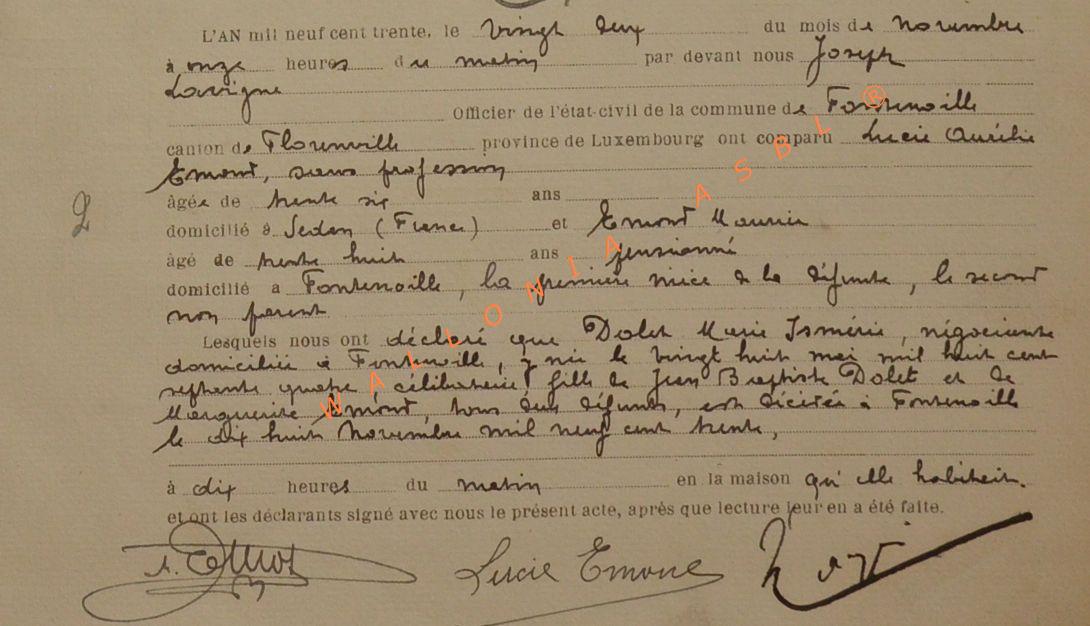 L'AN mil neuf cent trente, le vingt deux du mois de novembre
à onze heures du matin par devant nous Joseph
Lavigne
Officier de l'état-civil de la commune de Fontenoille
canton de Florenville province de Luxembourg ont comparu Lucie Aurélie
Emont, sans profession
âgée de trente six ans
2
domicilié à Sedan (France) et Emont Maurice
âgé de trente huit ans pensionné
domicilié à Fontenoille, la première nièce de la défunte, le second
non parent
Lesquels nous ont déclaré que Dolet Marie Ismérie, négociante
domiciliée à Fontenoille, y née le vingt huit mai mil huit cent
septante quatre célibataire, fille de Jean Baptiste Dolet et de
Marguerite Emont, tous deux défunts, est décédée à Fontenoille
le dix huit novembre mil neuf cent trente,
à dix heures du matin en la maison qu'elle habitait.
et ont les déclarants signé avec nous le présent acte, après que lecture leur en a été faite.
Emont Lucie Emont
WALLONIA ASBL ®